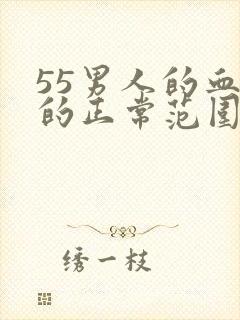 55男人的血
的正常范围
绣一枝